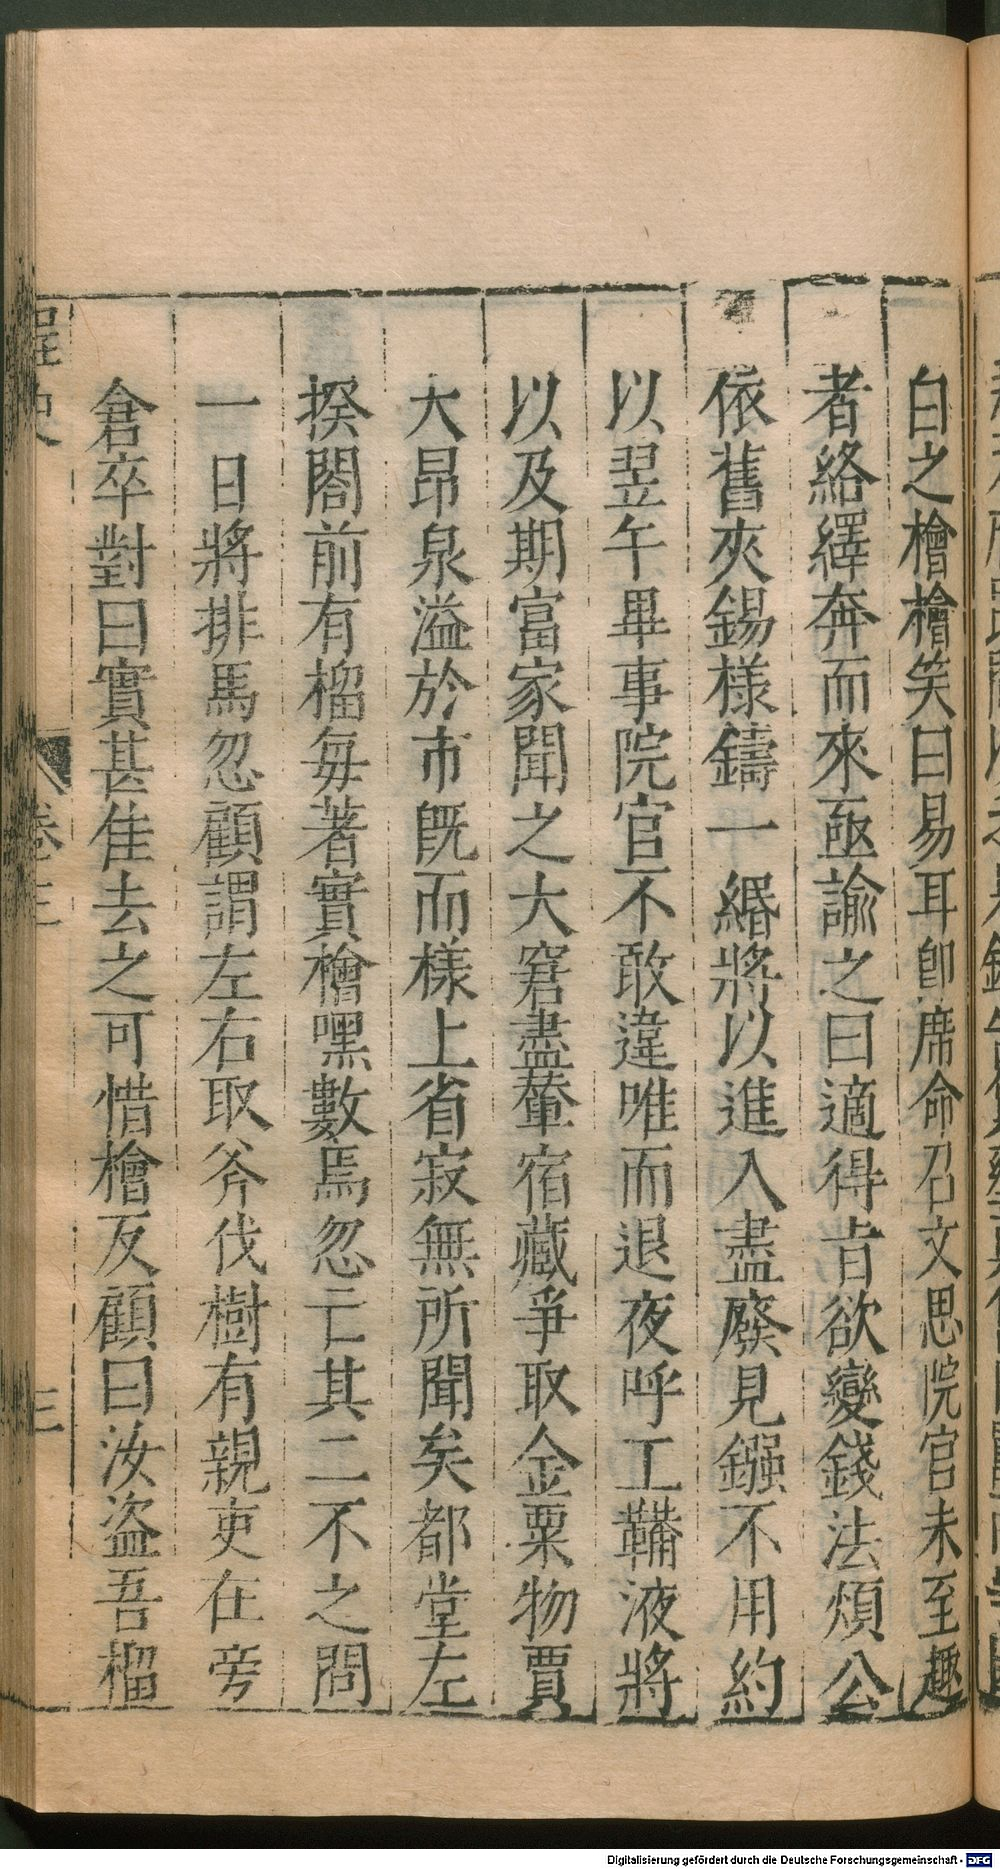 白之檜檜笑曰易耳卽席命召文思院官未至趣
者絡繹奔而來亟諭之曰適得旨欲變錢法煩公
依舊夾錫樣鑄一緡將以進入盡廢見鏹不用約
以翌午畢事院官不敢違唯而退夜呼工鞴液將
以及期富家聞之大窘盡輦宿藏爭取金粟物賈
大昂泉溢於市旣而樣上省寂無所聞矣都堂左
揆閤前有榴每著實檜嘿數焉忽亡其二不之問
一日將排馬忽顧謂左右取斧伐樹有親吏在旁
倉卒對曰實甚佳去之可惜檜反顧曰汝盗吾榴
桯史
卷三
三
Digitalisierung gefördert durch die Deutsche Forschungsgemeinschaft - DFG